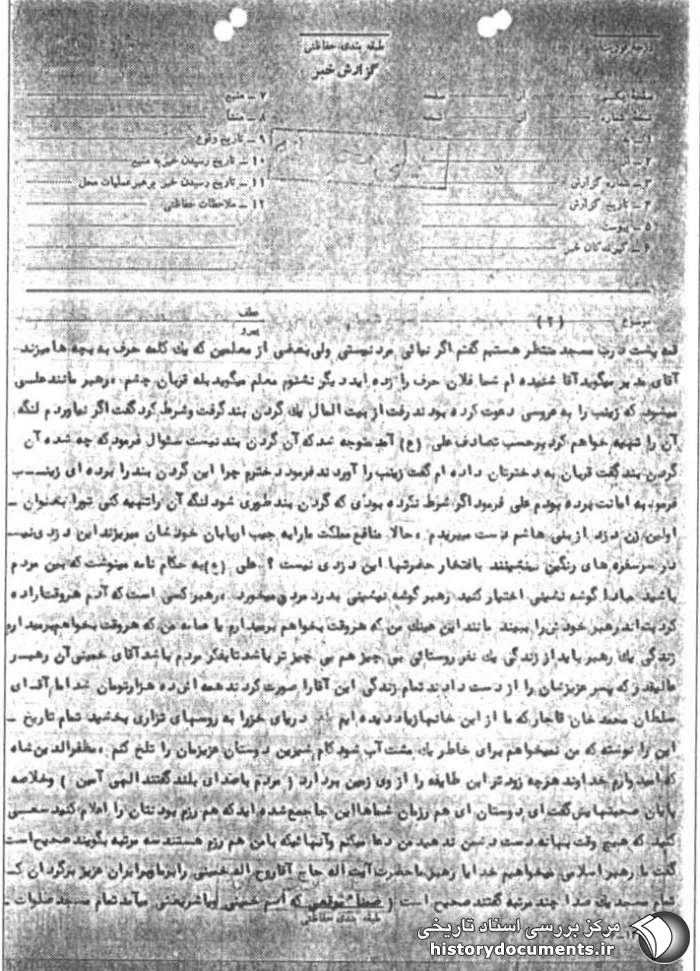 طبقه بندی حفاظتی
گزارش خبر
۷ ـ منبع
از صفحه
۸ ـ منشا
از نسخه
۹ ـ تاریخ وقوع
۱ ـ به
۱۰ ـ تاریخ رسیدن خبر به منبع
۲ ـ از
۱۱ ـ تاریخ رسیدن خبر برهبر عملیات محل
۳ ـ شماره گزارش
۱۲ ـ ملاحظات حفاظتی
۴ ـ تاریخ گزارش
۵ ـ پیوست
۶ ـ گیرندگان خبر
موضوع (۲) عطف
پیرو
پشت درب مسجد منتظر هستیم گفتم اگر نیائی مرد نیستی ولی بعضی از معلمین که یك کلمه حرف به بچه ها میزند
آقای مدیر میگوید آقا شنیده ام شما فلان حرف را زده اید دیگر نشنوم معلم میگوید بله قربان چشم . رهبر مانند علی
میشود که زینب را به عروسی دعوت کرده بودند رفت از بیت المال یك گردن بند گرفت وشرط کرد گفت اگر نیاوردم لنگه
آن را تهیه خواهم کرد برحسب تصادف علی (ع) آمد متوجه شد که آن گردن بند نیست سئوال فرمود که چه شده آن
گردن بند گفت قربان به دخترتان داده ام گفت زینب را آوردند فرمود دخترم چرا این گردن بند را برده ای زینب
به امانت برده بودم علی فرمود اگر شرط نکرده بودی که گردن بند طوری شود لنگه آن راتهیه کنی تورا بعنوان ـ
اولین زن دزد از بنی هاشم دست میبریدم . حالا منافع مملکت ما را به جیب اربابان خودشان میریزند این دزدی نیست
در سر سفره های رنگین مینشینند با افتخار حضرتها این دزدی نیست ؟ علی (ع) به حکام نامه مینوشت که بین مردم
باشید مبادا گوشه نشینی اختیار کنید رهبر گوشه نشینی بدرد مردم نمیخورد . رهبر کسی است که آدم هروقت اراده
کرد بتواند رهبر خودش را ببیند مانند این عینك من که هروقت بخواهم برمیدارم یا عمامه من که هروقت بخواهم برمیدارم
زندگی یك رهبر باید از زندگی یك نفر روستائی بی چیز هم بی چیز تر باشد تا بفکر مردم باشد آقای خمینی آن رهبر
که پسر عزیزشان را از دست دادند تمام زندگی این آقا را صورت کردند همه اش ده هزارتومان شد اما آقای
سلطان محمد خان قاجار که ما از این خانها زیاد دیده ایم دریای خزر را به روسهای تزاری بخشید تمام تاریخ ـ
این را نوشته که من نمیخواهم برای خاطر یك مشت آب شور کام شیرین دوستان عزیزمان را تلخ کنم . مظفرالدین شاه
که امیدوارم خداوند هرچه زودتر این طایفه را از روی زمین بردارد ( مردم باصدای بلند گفتند الهی آمین ) وخلاصه
پایان صحبتهایش گفت ای دوستان ای هم رزمان شماها این جا جمع شده اید که هم رزم بودنتان را اعلام کنید سعی
کنید که هیچ وقت بهانه دست دشمن ندهید من دعا میکنم وآنهائیکه با من هم رزم هستند سه مرتبه بگویند صحیح است
گفت ما رهبر اسلامی میخواهیم خدایا رهبر ما حضرت آیت اله حاج آقا روح اله خمینی را بزما ایران عزیز برگردان که
تمام مسجد یك صدا چند مرتبه گفتند صحیح است ( ضمنا موقعی که اسم خمینی ویاشریعتی میآمد تمام مسجد صلوات ـ
طبقه بندی حفاظتی
مرکز بررسی اسناد تاریخی
historydocuments.ir